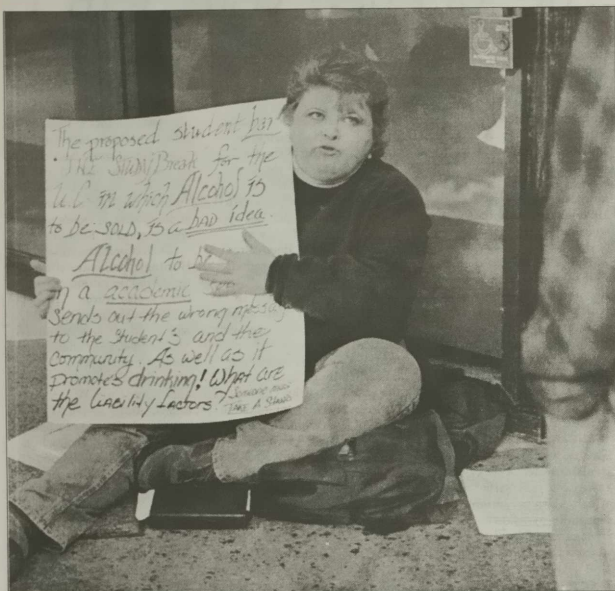 The proposed student bar
The StudyBreak for the
U C in which Alcohol is
to be SOLD, is a BAD idea.
Alcohol to be
in a academic
Sends out the wrong messag
to the Student's and the
community. As well as it
promotes drinking! What are
the Liability factors?
Someone must
TAKE A Stand